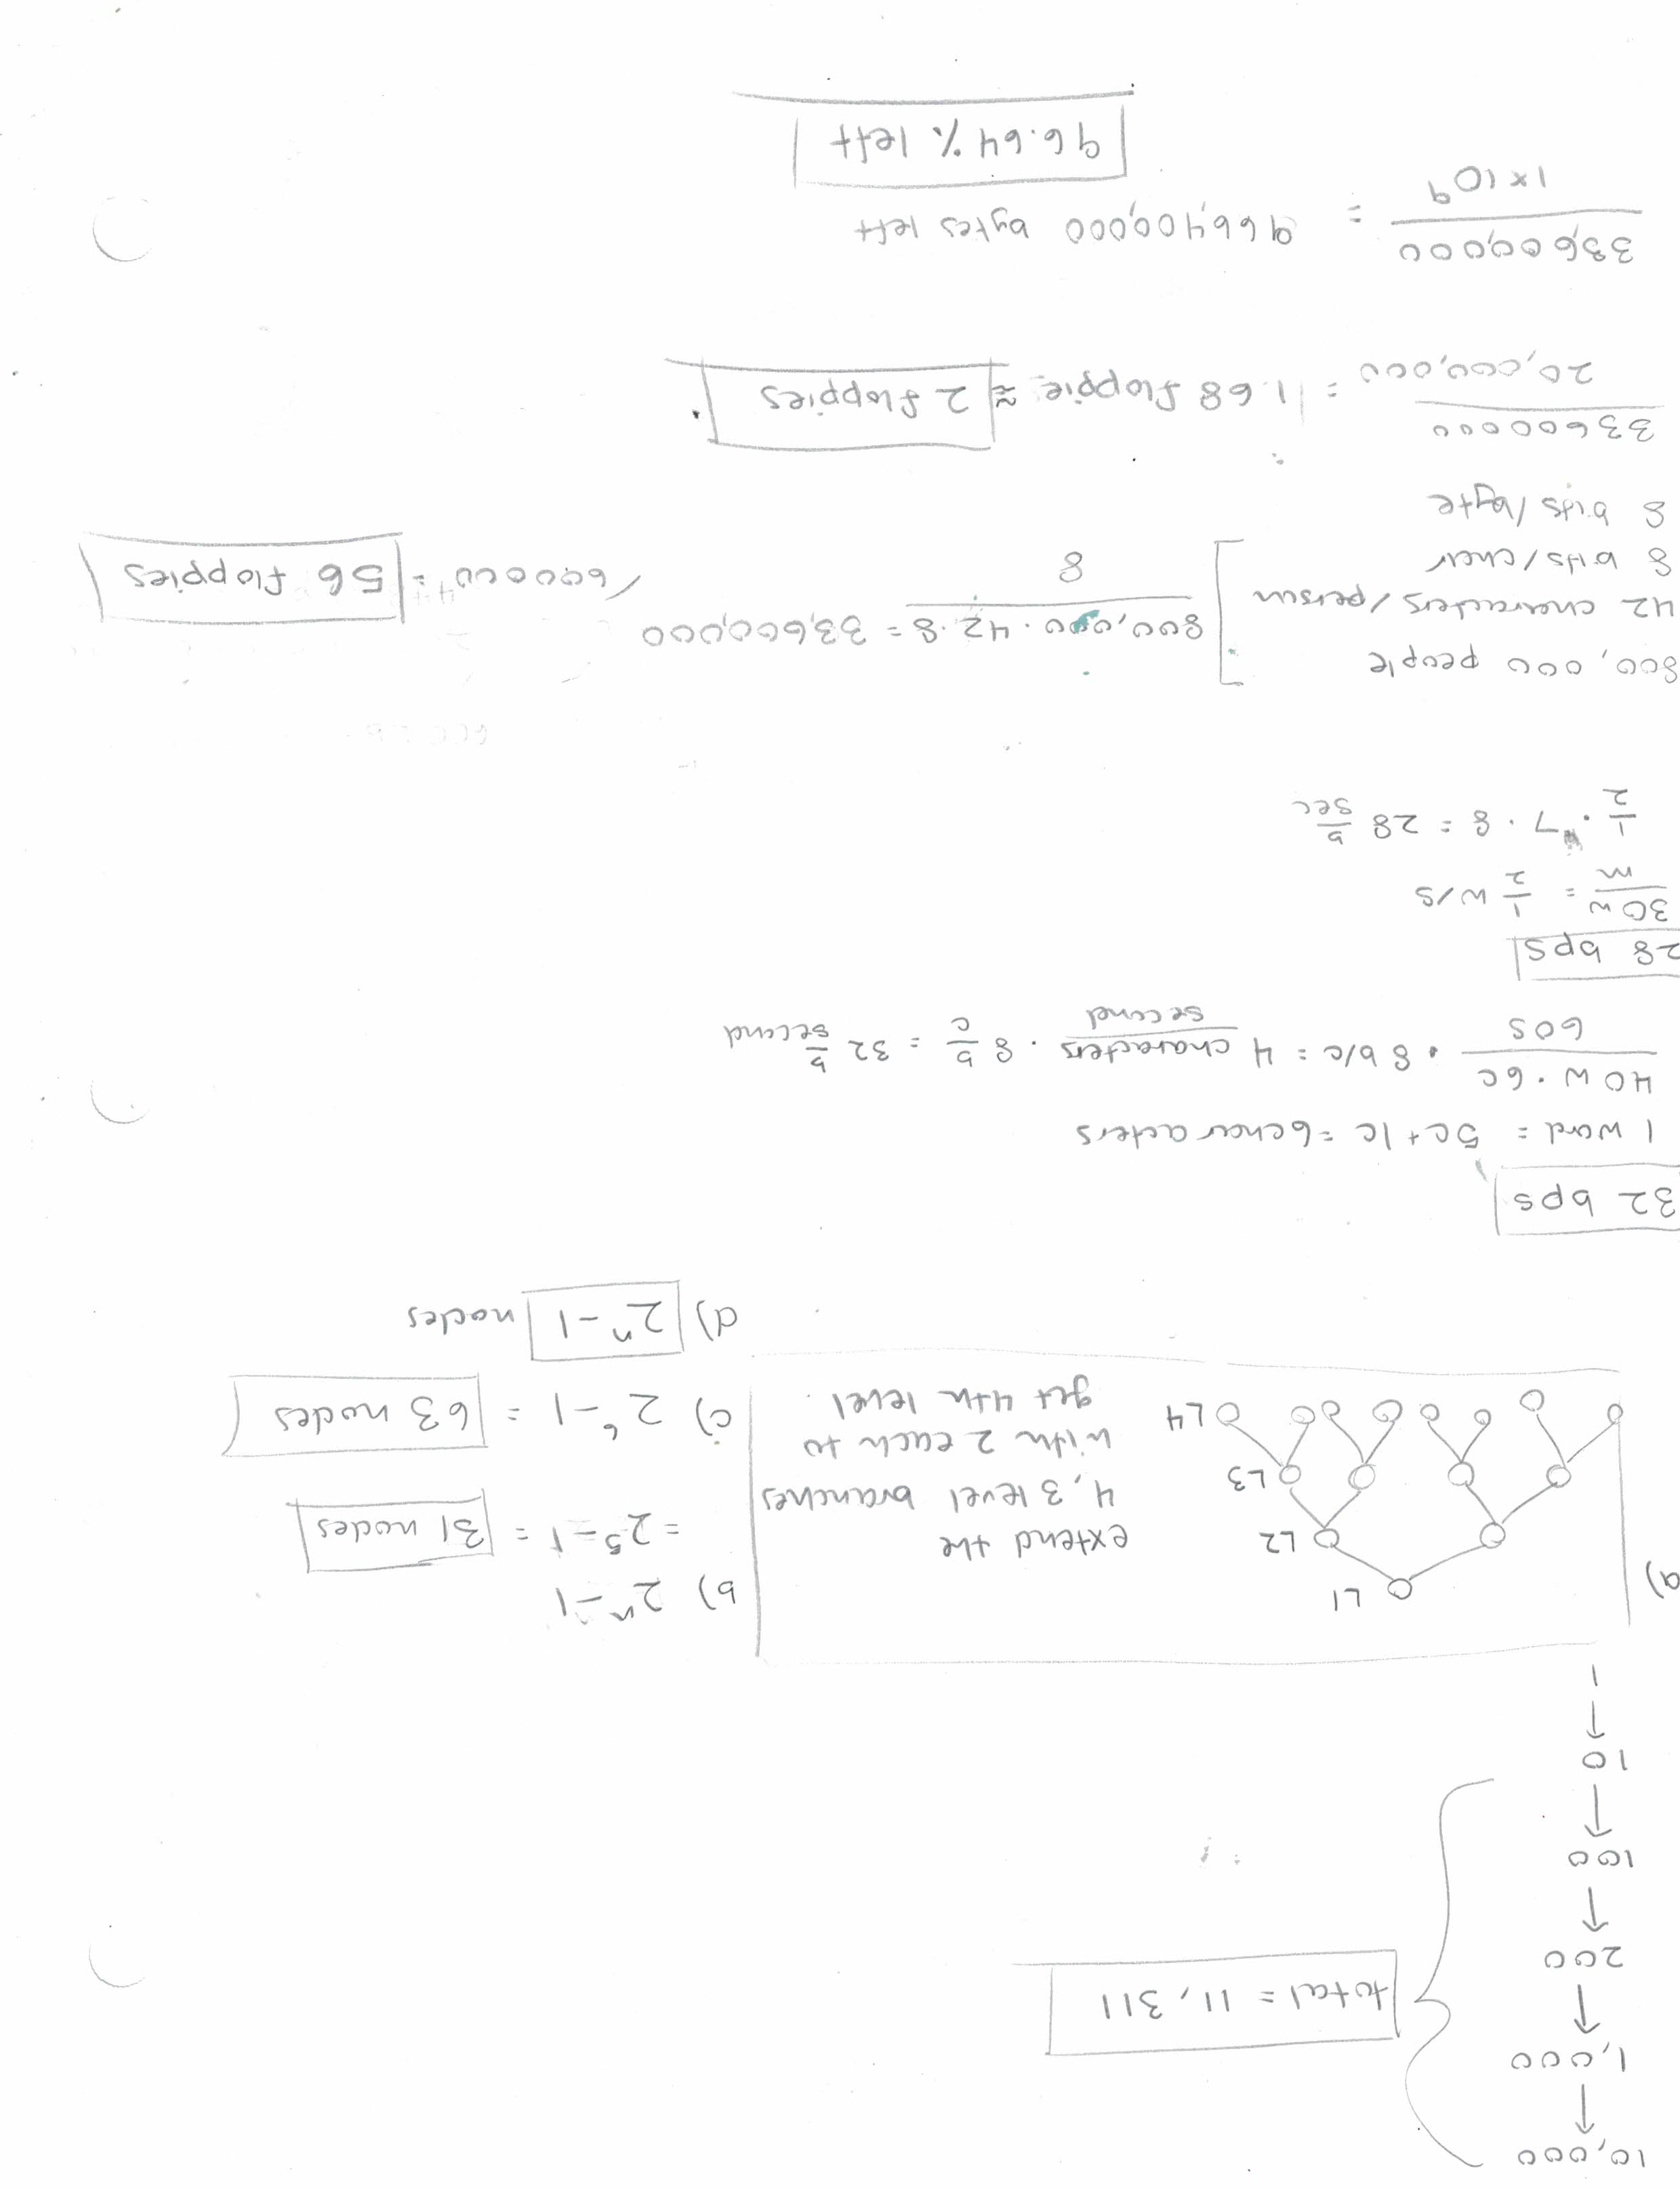 10,000
↓
1,000
↓
200
↓
100
↓
10
↓
1
total = 11,311
a)
L1
L2
L3
L4
extend the
4, 3 level branches
with 2 each to
get 4th level.
b) 2^n - 1
= 2^5 - 1 = 31 nodes
c) 2^6 - 1 = 63 nodes
d) 2^n - 1 nodes
32 bps
1 word = 5c + 1c = 6 characters
40 w · 6c / 60s · 8 b/c = 4 characters/second · 8 b/c = 32 b/second
28 bps
30 w / m = 1/2 w/s
1/2 · 7 · 8 = 28 b/sec
800,000 people
42 characters/person
8 bits/char
8 bits/byte
800,000 · 42 · 8 / 8 = 33,600,000 / 600000 = 56 floppies
33600000 / 20,000,000 = 1.68 floppie ≈ 2 floppies
33,600,000 / 1 × 10^9 = 966,400,000 bytes left
96.64 % left